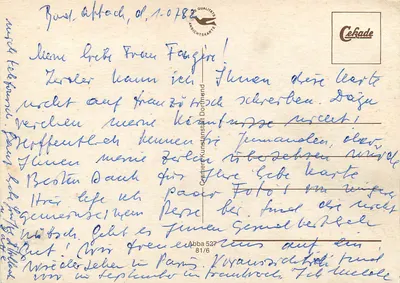 Bad Aibling, d. 1.07.82
Meine liebe Frau Fangère!
Leider kann ich Ihnen diese Karte
nicht auf französisch schreiben. Dazu
reichen meine Kenntnisse nicht!
Hoffentlich kennen Sie jemanden, der
Ihnen meine Zeilen übersetzen würde
Besten Dank für Ihre liebe Karte
Hier lege ich paar Fotos von unserer
gemeinsamen Reise bei. Sind die nicht
hübsch. Geht es Ihnen gesundheitlich
gut! Wir freuen uns auf ein
Wiedersehen in Paris. Voraussichtlich sind
wir im September in Frankreich. Ich melde
mich telefonisch
QUALITÄTS
ANSICHTSKARTE
Cekade
Cramers Kunstanstalt Dortmund
Abba 527
81/6